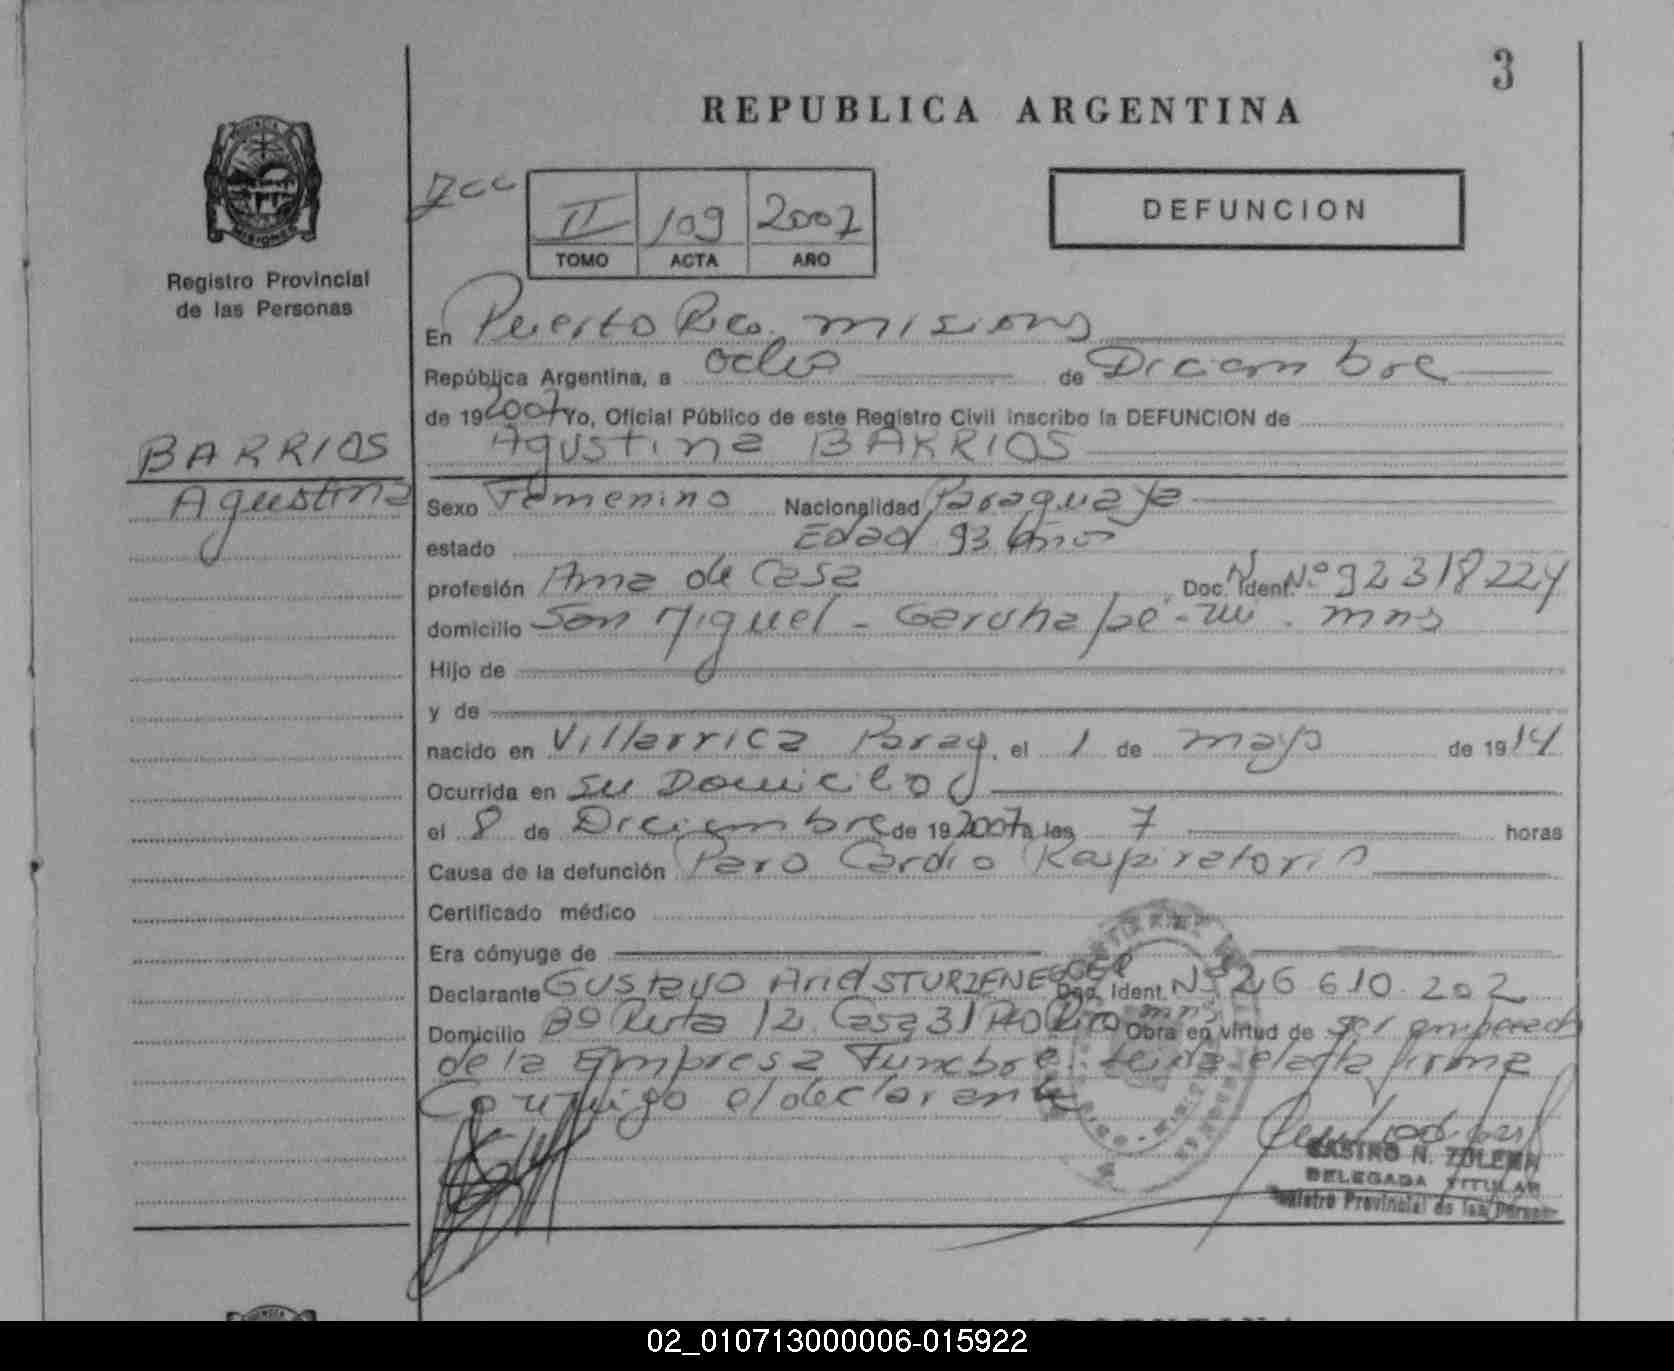 3
REPUBLICA ARGENTINA
II 109 2007
TOMO ACTA AÑO
DEFUNCION
Registro Provincial
de las Personas
En Puerto Rico. Misiones
República Argentina, a ocho de Diciembre
de 19 2007 Yo, Oficial Público de este Registro Civil inscribo la DEFUNCION de
BARRIOS
Agustina BARRIOS
Agustina
Sexo Femenino Nacionalidad Paraguaya
estado Edad 93 Años
profesión Ama de Casa Doc. N Ident. Nº 92318224
domicilio San Miguel - Garuhapé - Mi . mns
Hijo de
y de
nacido en Villarrica Parag. el 1 de mayo de 1914
Ocurrida en su Domicilio
el 8 de Diciembre de 19 2007 a las 7 horas
Causa de la defunción Paro Cardio Respiratorio
Certificado médico
Era cónyuge de
Declarante Gustavo Ariel STURZENEGGER Doc. Ident. Nº 26 610.202
Domicilio Bº Ruta 12 Casa 31 Pto Rico mns Obra en virtud de ser empleado
de la Empresa Funebre. leida el acta firma
Conmigo el declarante
CASTRO N. ZULEMA
DELEGADA TITULAR
Registro Provincial de las Personas
02_010713000006-015922